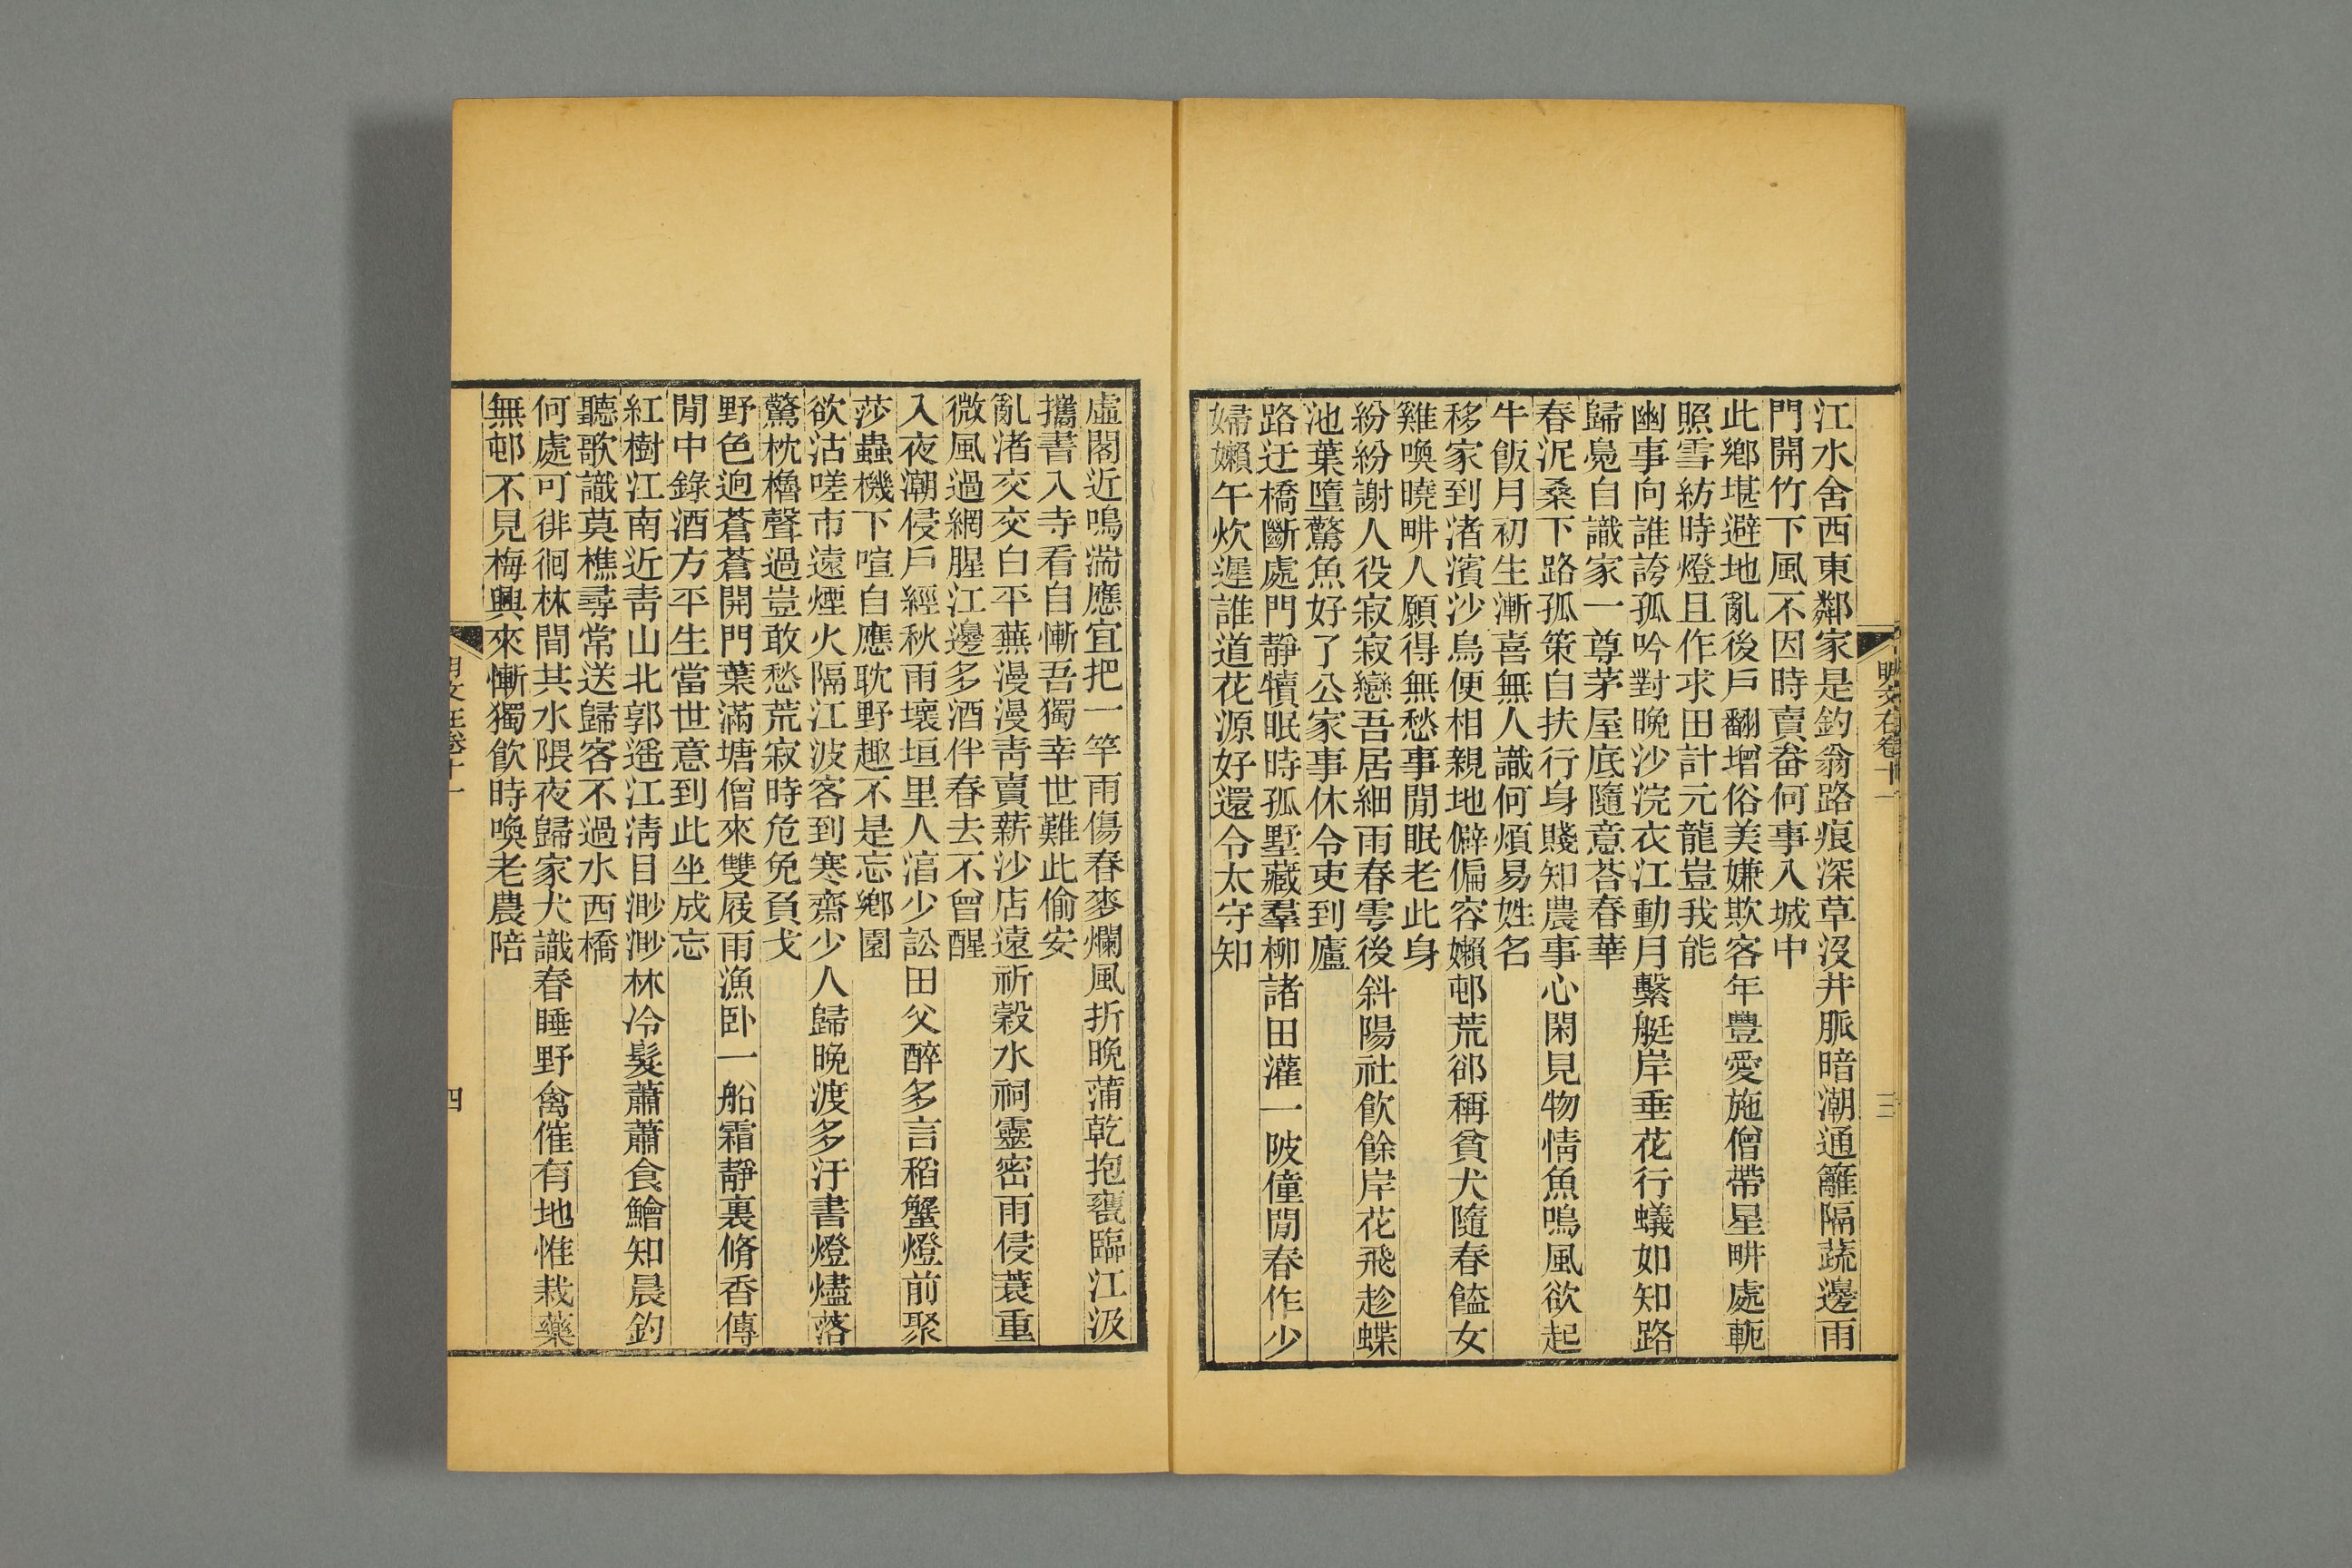 江水舍西東鄰家是釣翁路痕深草沒井脈暗潮通籬隔蔬邊雨
門開竹下風不因時賣畚何事入城中
此鄉堪避地亂後戶翻增俗美嫌欺客年豐愛施僧帶星畊處軛
照雪紡時燈且作求田計元龍豈我能
幽事向誰誇孤吟對晚沙浣衣江動月繫艇岸垂花行蟻如知路
歸鳧自識家一尊茅屋底隨意荅春華
春泥桑下路孤策自扶行身賤知農事心閑見物情魚鳴風欲起
牛飯月初生漸喜無人識何煩易姓名
移家到渚濱沙鳥便相親地僻偏容嬾邨荒郤稱貧犬隨春饁女
雞喚曉畊人願得無愁事閒眠老此身
紛紛謝人役寂寂戀吾居細雨春雩後斜陽社飲餘岸花飛趁蝶
池葉墮驚魚好了公家事休令吏到廬
路迂橋斷處門靜犢眠時孤墅藏羣柳諸田灌一陂僮閒春作少
婦嬾午炊遲誰道花源好還令太守知
三
虛閣近鳴湍應宜把一竿雨傷春麥爛風折晚蒲乾抱甕臨江汲
攜書入寺看自慚吾獨幸世難此偷安
亂渚交交白平蕪漫漫青賣薪沙店遠祈穀水祠靈密雨侵蓑重
微風過網腥江邊多酒伴春去不曾醒
入夜潮侵戶經秋雨壞垣里人湻少訟田父醉多言稻蟹燈前聚
莎蟲機下喧自應耽野趣不是忘鄉園
欲沽嗟市遠煙火隔江波客到寒齋少人歸晚渡多汙書燈燼落
驚枕櫓聲過豈敢愁荒寂時危免負戈
野色迥蒼蒼開門葉滿塘僧來雙屐雨漁卧一船霜靜裏脩香傳
閒中錄酒方平生當世意到此坐成忘
紅樹江南近青山北郭遙江清目渺渺林冷髮蕭蕭食鱠知晨釣
聽歌識莫樵尋常送歸客不過水西橋
何處可徘徊林間共水隈夜歸家犬識春睡野禽催有地惟栽藥
無邨不見梅興來慚獨飲時喚老農陪
四